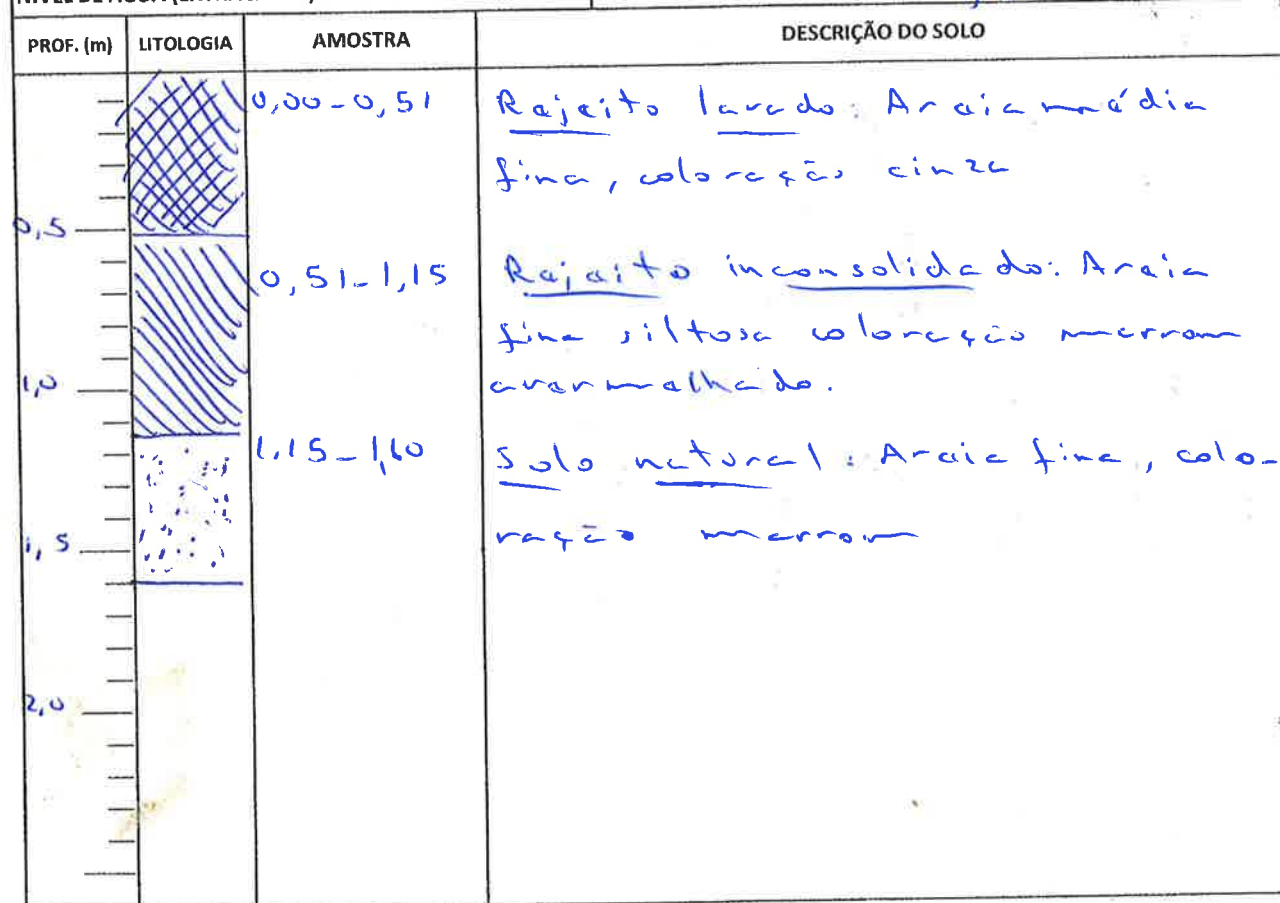 PROF. (m) LITOLOGIA AMOSTRA DESCRIÇÃO DO SOLO
0,00-0,51 Rejeito lavado: Areia média
fina, coloração cinza
0,5
0,51-1,15 Rejeito inconsolidado: Areia
fina siltosa coloração marrom
1,0 avermelhado.
1,15-1,60 Solo natural: Areia fina, colo-
1,5 ração marrom
2,0